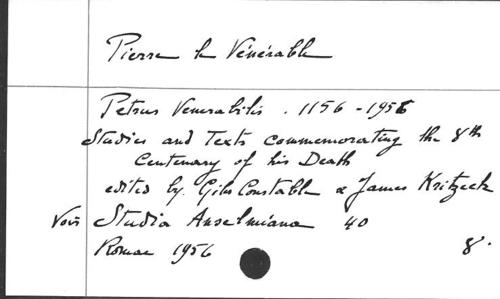 Pierre le Vénérable
Petrus Venerabilis . 1156 - 1956
Studies and Texts commemorating the 8th
Centenary of his Death
edited by. Giles Constable & James Kritzeck
Voir Studia Anselmiana 40
Romae 1956 8°